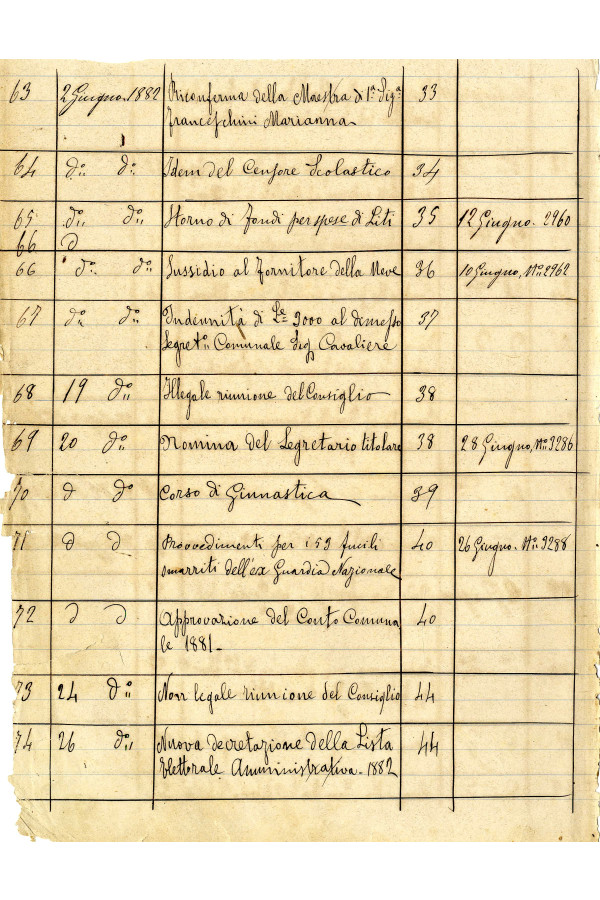 63 2 Giugno 1882 Riconferma della Maestra di 1ª Sigª 33
Franceschini Marianna
64 dº dº Idem del Censore Scolastico 34
65 dº dº Storno di Fondi per spese di Liti 35 12 Giugno. 2960
66 d
66 dº dº Sussidio al Fornitore della Neve 36 10 Giugno, Nº 2962
67 dº dº Indennità di Lᵉ 3000 al dimesso 37
Segretº Comunale Sig Cavaliere
68 19 dº Illegale riunione del Consiglio 38
69 20 dº Nomina del Segretario titolare 38 28 Giugno, Nº 3286
70 d dº Corso di Ginnastica 39
71 d d Provvedimenti per i 53 fucili 40 26 Giugno. Nº 3288
smarriti dell'ex Guardia Nazionale
72 d d Approvazione del Conto Comuna 40
le 1881-
73 24 dº Non legale riunione del Consiglio 44
74 26 dº Nuova decretazione della Lista 44
Elettorale Amministrativa - 1882